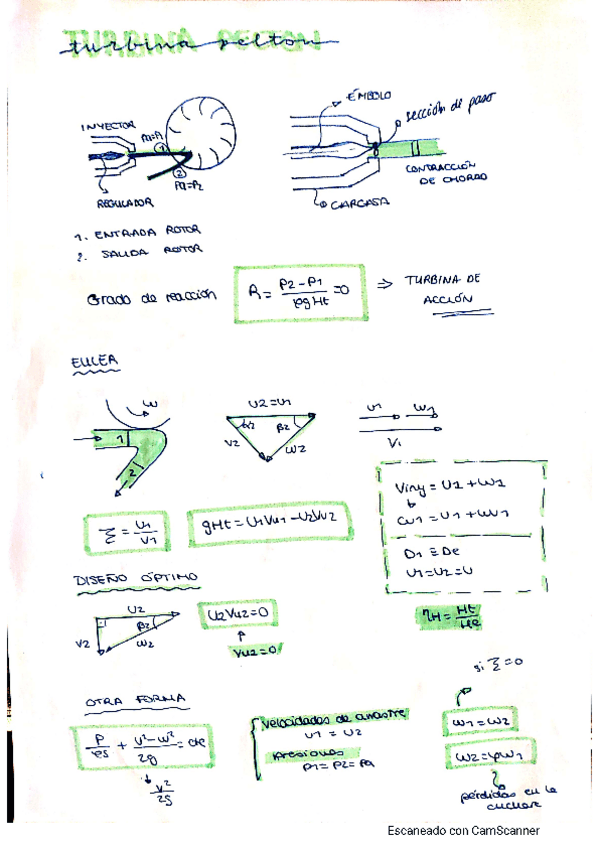 TURBINA PELTON
turbina pelton
INYECTOR
Pa=P1
1
2
Pa=P2
REGULADOR
ÉMBOLO
sección de paso
CONTRACCIÓN
DE CHORRO
CARCASA
1. ENTRADA ROTOR
2. SALIDA ROTOR
Grado de reacción
R = (P2 - P1) / (ρgHt) = 0
⇒ TURBINA DE
ACCIÓN
EULER
ω
1
2
U2 = U1
α2
β2
V2
W2
U1 W1
V1
ξ = U1 / V1
gHt = U1Vu1 - U2Vu2
Viny = U1 + W1
Cu1 = U1 + Wu1
D1 ≡ De
U1 = U2 = U
DISEÑO ÓPTIMO
U2
β2
V2
W2
U2Vu2 = 0
Vu2 = 0
ηH = Ht / He
si ξ = 0
OTRA FORMA
P / ρg + (V² - W²) / 2g = cte
V² / 2g
Velocidades de arrastre
U1 = U2
presiones
P1 = P2 = Pa
W1 = W2
W2 = φW1
pérdidas en la
cuchara
Escaneado con CamScanner